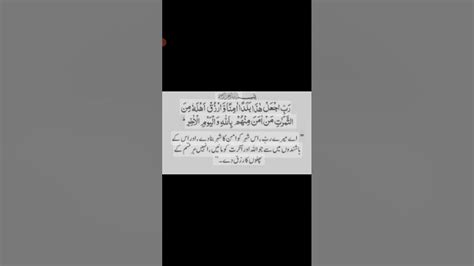 رَبِّ اجْعَلْ هٰذَا بَلَدًا اٰمِنًا وَّارْزُقْ اَهْلَهٗ مِنَ
الثَّمَرٰتِ مَنْ اٰمَنَ مِنْهُمْ بِاللّٰهِ وَالْيَوْمِ الْاٰخِرِ
"اے میرے رب، اس شہر کو امن کا شہر بنا دے، اور اس کے
باشندوں میں سے جو اللہ اور آخرت کو مانیں، انہیں ہر قسم کے
پھلوں کا رزق دے۔"